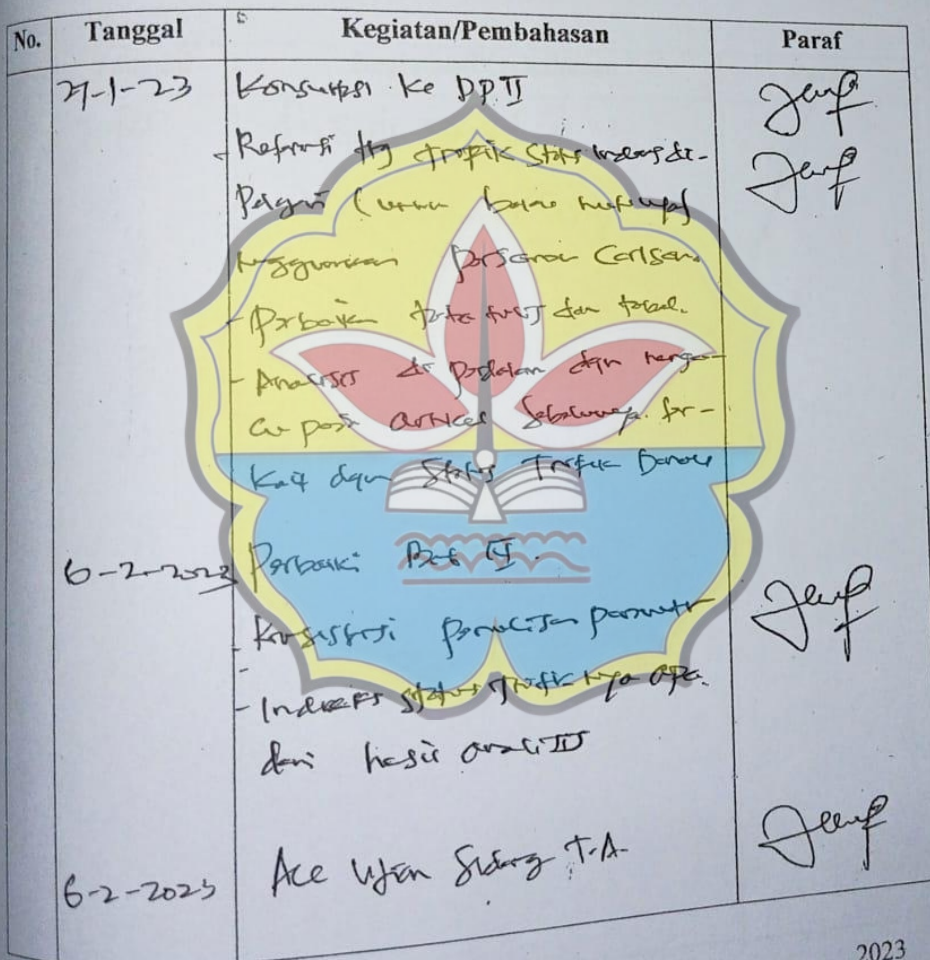 No. Tanggal Kegiatan/Pembahasan Paraf
Konsultasi ke DP II
- Referensi ttg trofik status
menggunakan Carlson.
- Perbaiki tata tulis dan tabel.
- Analisis di perdalam dgn menga-
cu pada artikel sebelumnya ter-
kait dgn Status Trofik Danau
6-2-2023 Perbaiki Bab IV.
- Konsistensi penulisan parameter
- Indeks status trofik nya apa.
dari hasil analisis
6-2-2023 Acc Ujian Sidang T.A.
2023